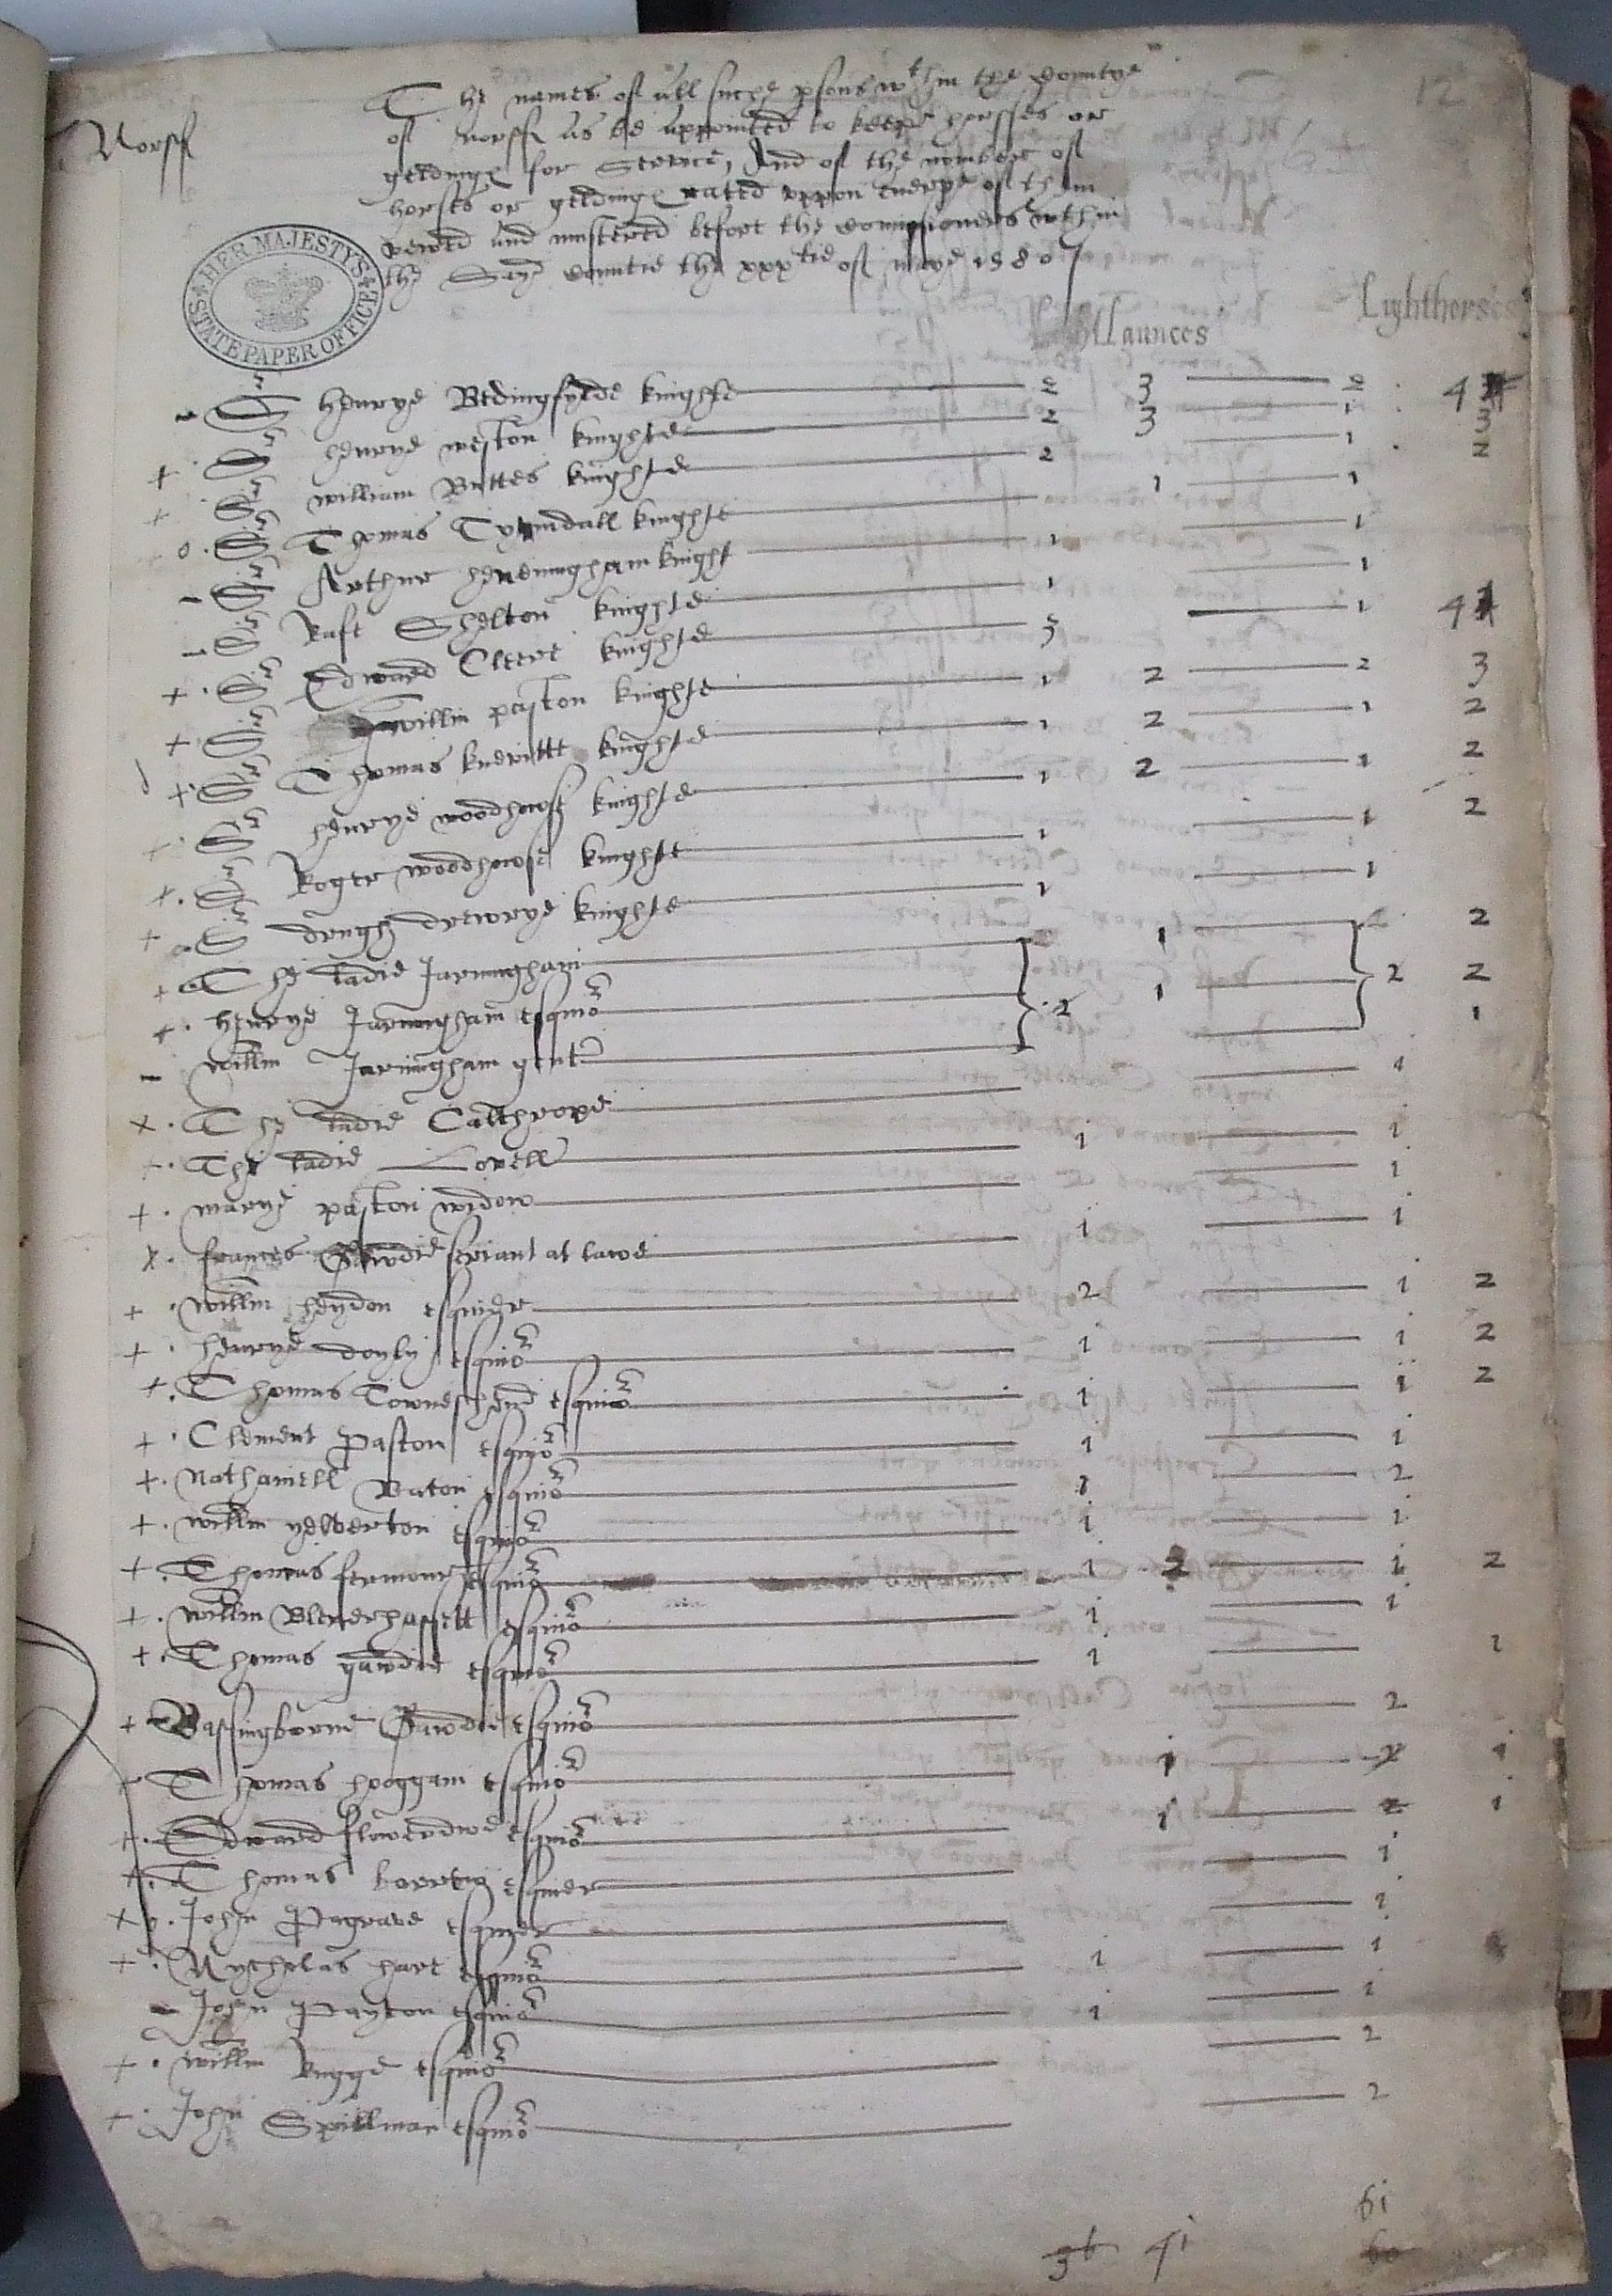 12
Norff
The names of all suche psons wthin the Countye
of Norff as be appointed to keepe horsses or
geldinges for Service, And of the number of
horses or geldinges rated uppon everye of them
vewed and mustered before the Comissioners wthin
the Saye Countie the xxxtie of maye 1580
HER MAJESTYS STATE PAPER OFFICE
Launces Lighthorses
- Sr henrye Bedingfylde knighte 2 3 2 4
+ Sr henrye weston knighte 2 3 1 3
+ Sr william Buttes knighte 2 1 2
o Sr Thomas Tyndall knighte 1 1
- Sr Arthur heveningham knight 1 1
- Sr Rafe Shelton knighte 1 1
+ Sr Edward Cleere knighte 3 1 4
+ Sr willm paston knighte 1 2 2 3
+ Sr Thomas knevitt knighte 1 2 1 2
+ Sr henrye woodhowse knighte 1 2 1 2
+ Sr Roger woodhowse knighte 1 1 2
+ Sr drugh drewrye knighte 1 1
+ The ladie Jarningham 1 2
+ henrye Jarningham esquior 2 1 2 2
- willm Jarningham gent 1
x The ladie Calthrope 1
The ladie Lovell 1 1
+ marye paston widow 1
x frances Gawdie seriant at lawe 1 1
+ willm heydon esquier 2 1 2
+ henrye doyly esquior 1 1 2
+ Thomas Towneshend esquior 1 1 2
+ Clement Paston esquior 1 1
+ Nathaniell Bacon esquior 1 2
+ willm yelverton esquior 1 1
+ Thomas fermour esquior 1 2 1 2
+ willm Blenerhassett esquior 1 1
+ Thomas gawdie esquior 1 1
+ Bassingborne Gawdie esquior 2
+ Thomas hoggam esquior 1 2 1
+ Edward flowerdwe esquior 1 2 1
+ Thomas barrow esquier 1
x o John Pagrave esquier 1
+ Nycholas hare esquior 1 1
- John Payton esquior 1 1
+ willm Rugge esquior 2
+ John Spillman esquior 2
61
36 41 60